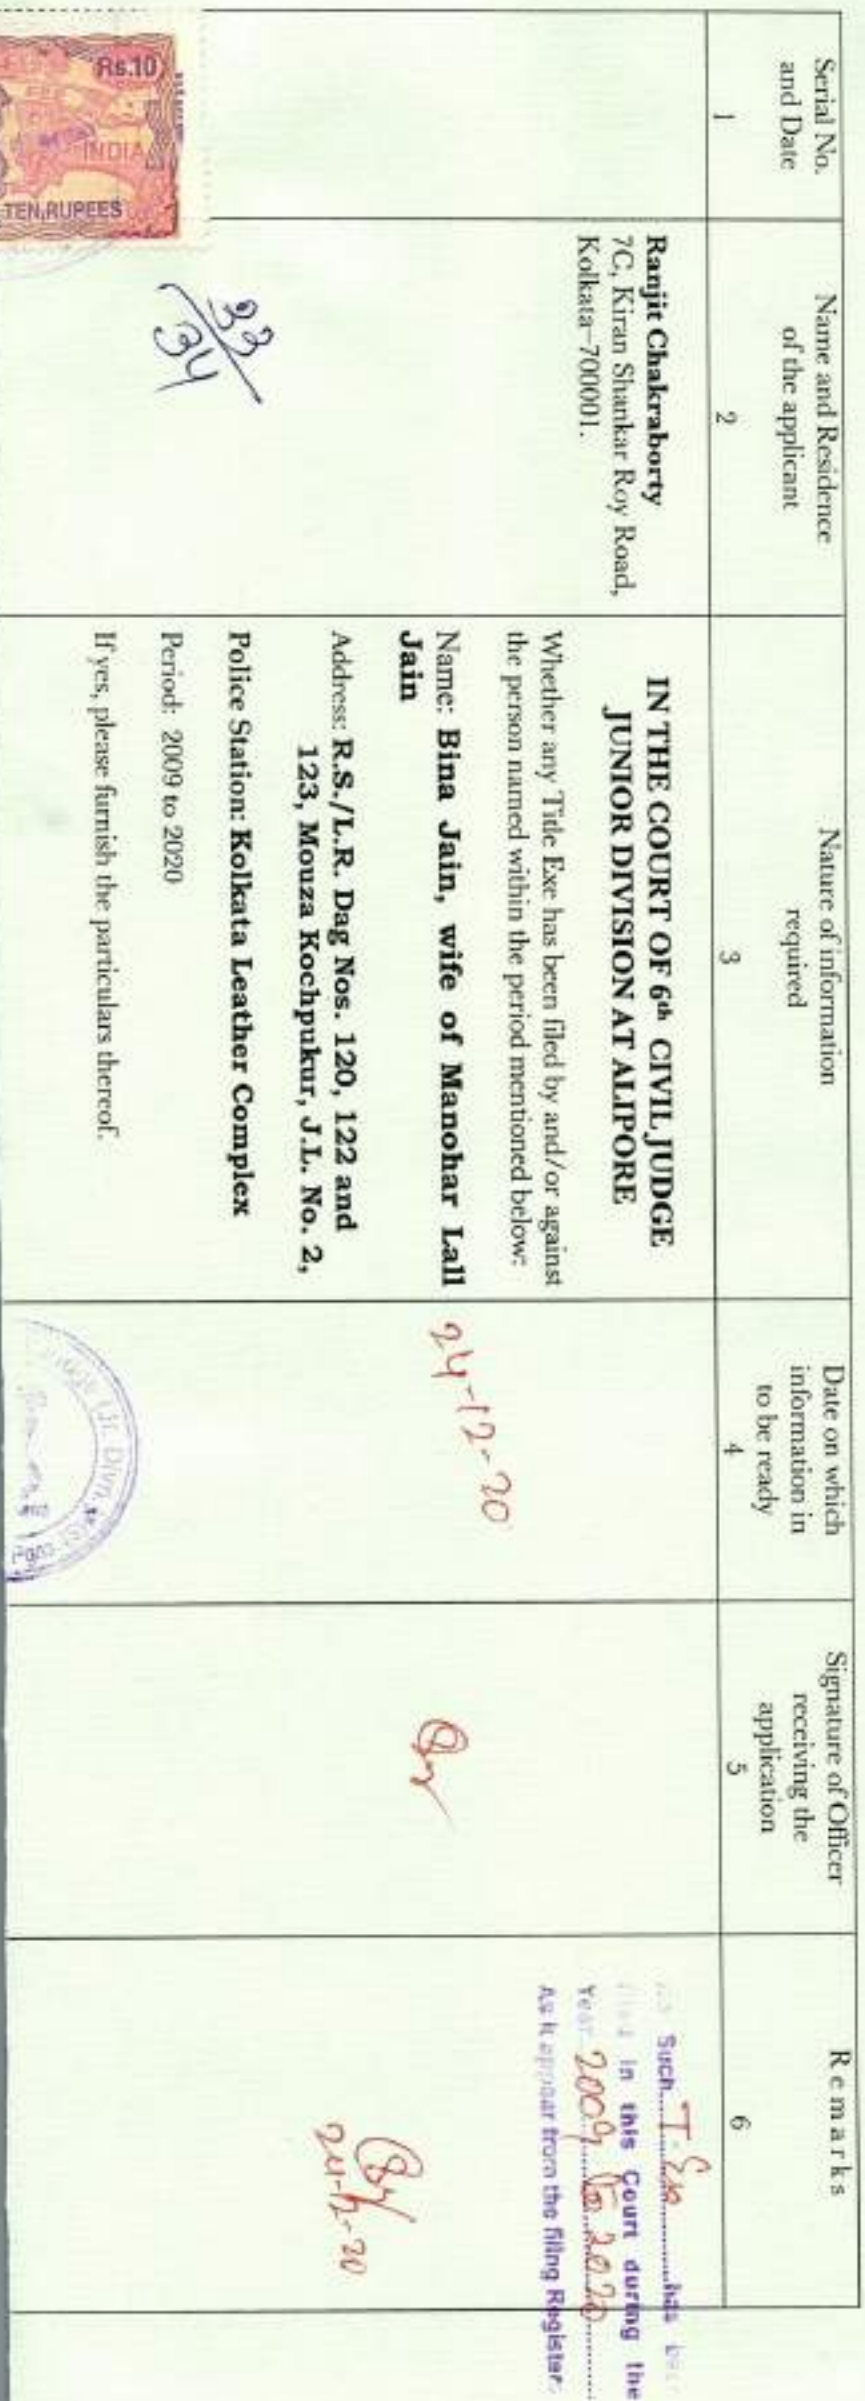 Serial No.
and Date
Name and Residence
of the applicant
Nature of information
required
Date on which
information in
to be ready
Signature of Officer
receiving the
application
Remarks
1
2
3
4
5
6
Ranjit Chakraborty
7C, Kiran Shankar Roy Road,
Kolkata-700001.
33/34
IN THE COURT OF 6th CIVIL JUDGE
JUNIOR DIVISION AT ALIPORE
Whether any Title Exe has been filed by and/or against
the person named within the period mentioned below:
Name: Bina Jain, wife of Manohar Lall
Jain
Address: R.S./L.R. Dag Nos. 120, 122 and
123, Mouza Kochpukur, J.L. No. 2,
Police Station: Kolkata Leather Complex
Period: 2009 to 2020
If yes, please furnish the particulars thereof.
24-12-20
Such T. Exe has
in this Court during the
Year 2009 to 2020
As it appear from the filing Register
24-12-20
Rs.10
INDIA
TEN RUPEES